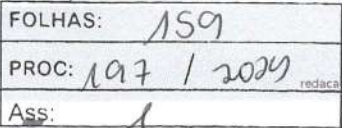 FOLHAS: 159
PROC: 197 / 2029
redaca
Ass: